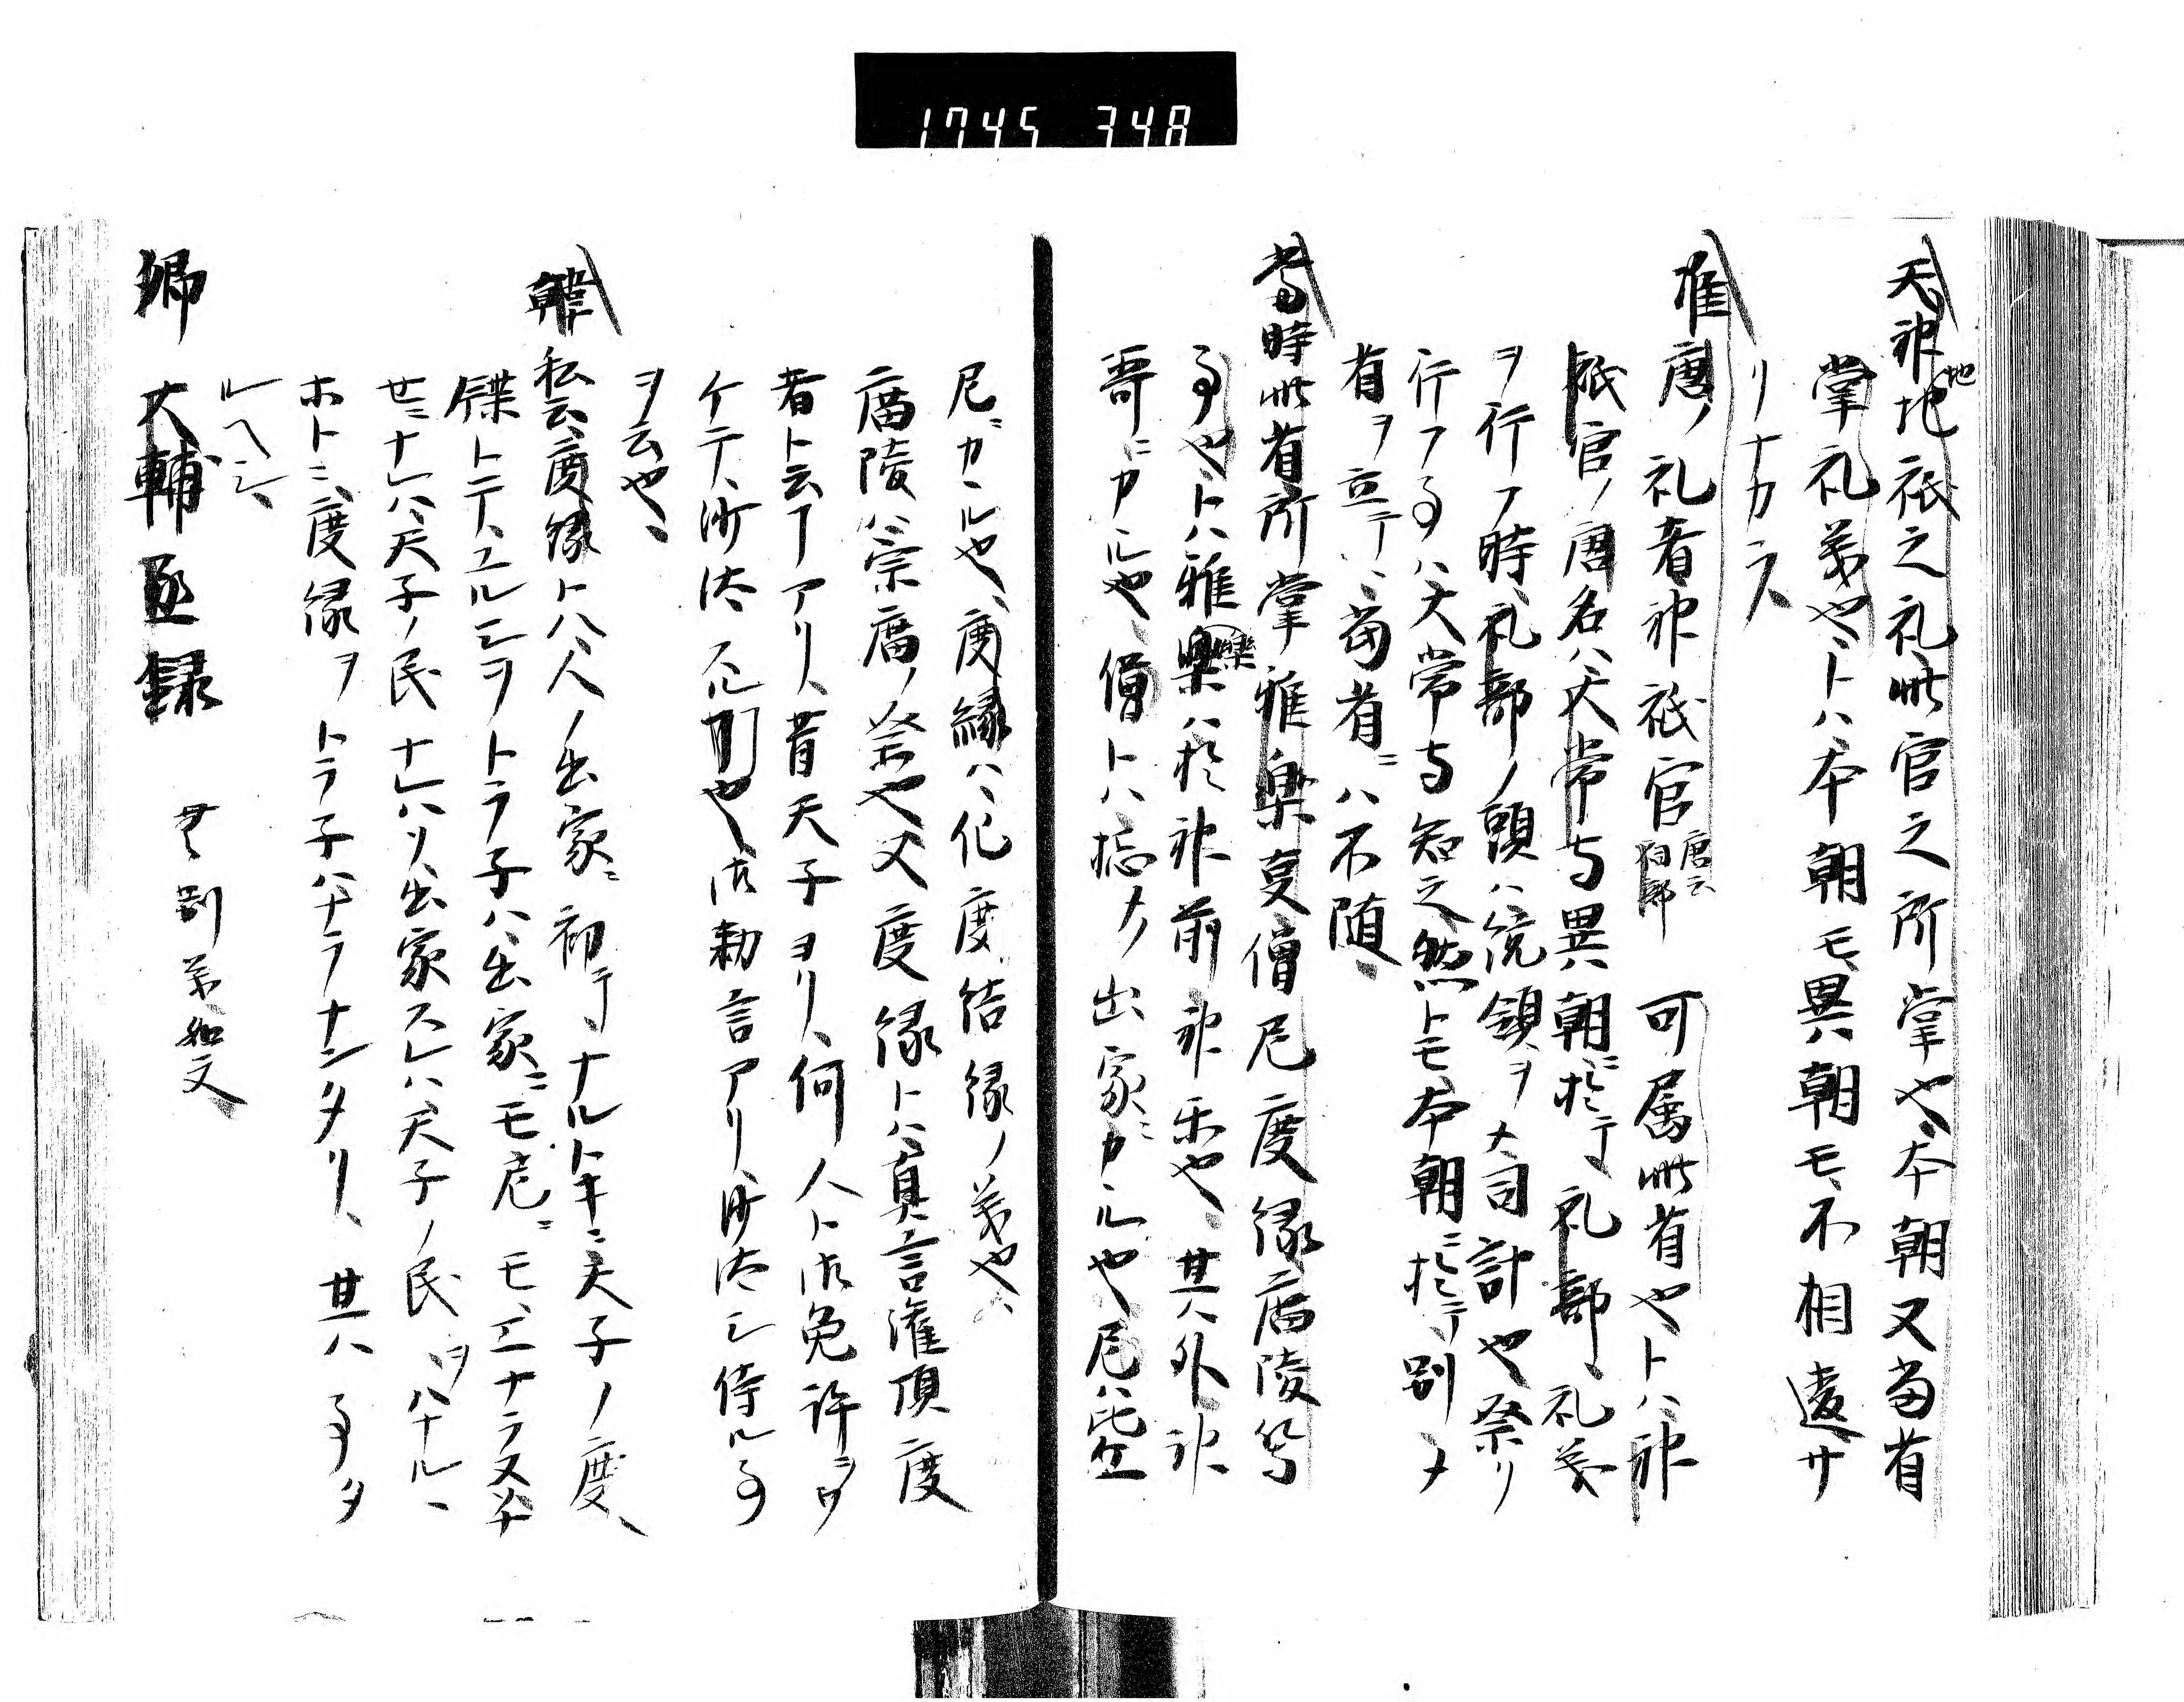 1745 348
天神地祇之礼此官之所掌也本朝又当省
地
掌礼義也トハ本朝モ異朝モ不相違サ
リナカラ
准唐ノ礼者神祇官
唐云
祠部
可属此省也トハ神
祇官ノ唐名ハ大常与異朝ニ於テ礼部、礼義
ヲ行フ時、礼部ノ頭ハ統領ヲメ司計也祭リ
行フ事ハ大常与知之然トモ本朝ニ於テ別メ
省ヲ立テハ、当省ニハ不随、
当時此省所掌雅楽寮僧尼度縁廟陵等
事也トハ雅楽ハ於神前神楽也、其外神
楽
哥ニカルや、僧トハ惣メ出家ニカルや尼ハ比丘
尼ニカルや、度縁ハ化度結縁ノ義や、
廟陵ハ宗廟ノ祭や又度縁トハ真言潅頂度
者ト云アリ、昔天子ヨリ、何人ト御免許ヲウ
ケテ、沙汰スル事や、御勅言アリ、沙汰シ侍ル事
ヲ云や、
私云、度縁トハ、人ノ出家ニ初テナルトキニ天子ノ度
牒トテ、ユルシヲトラ子ハ出家ニモ尼ニモ、エナラヌ
ナレハ天子ノ民ナレハリ、出家スレハ、天子ノ民ヲハナル、
ホトニ、度縁ヲトラ子ハナラナンタリ、其ハ事タ
ルヘシ、
卿 大輔 丞 録
無別義如文